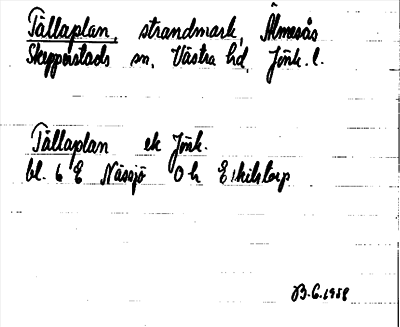 Tållaplan, strandmark, Älmesås
Skepperstads sn, Västra hd, Jönk. l.
Tållaplan ek Jönk.
bl. 6 E Nässjö 0 h Ekilstorp
B.G. 1958